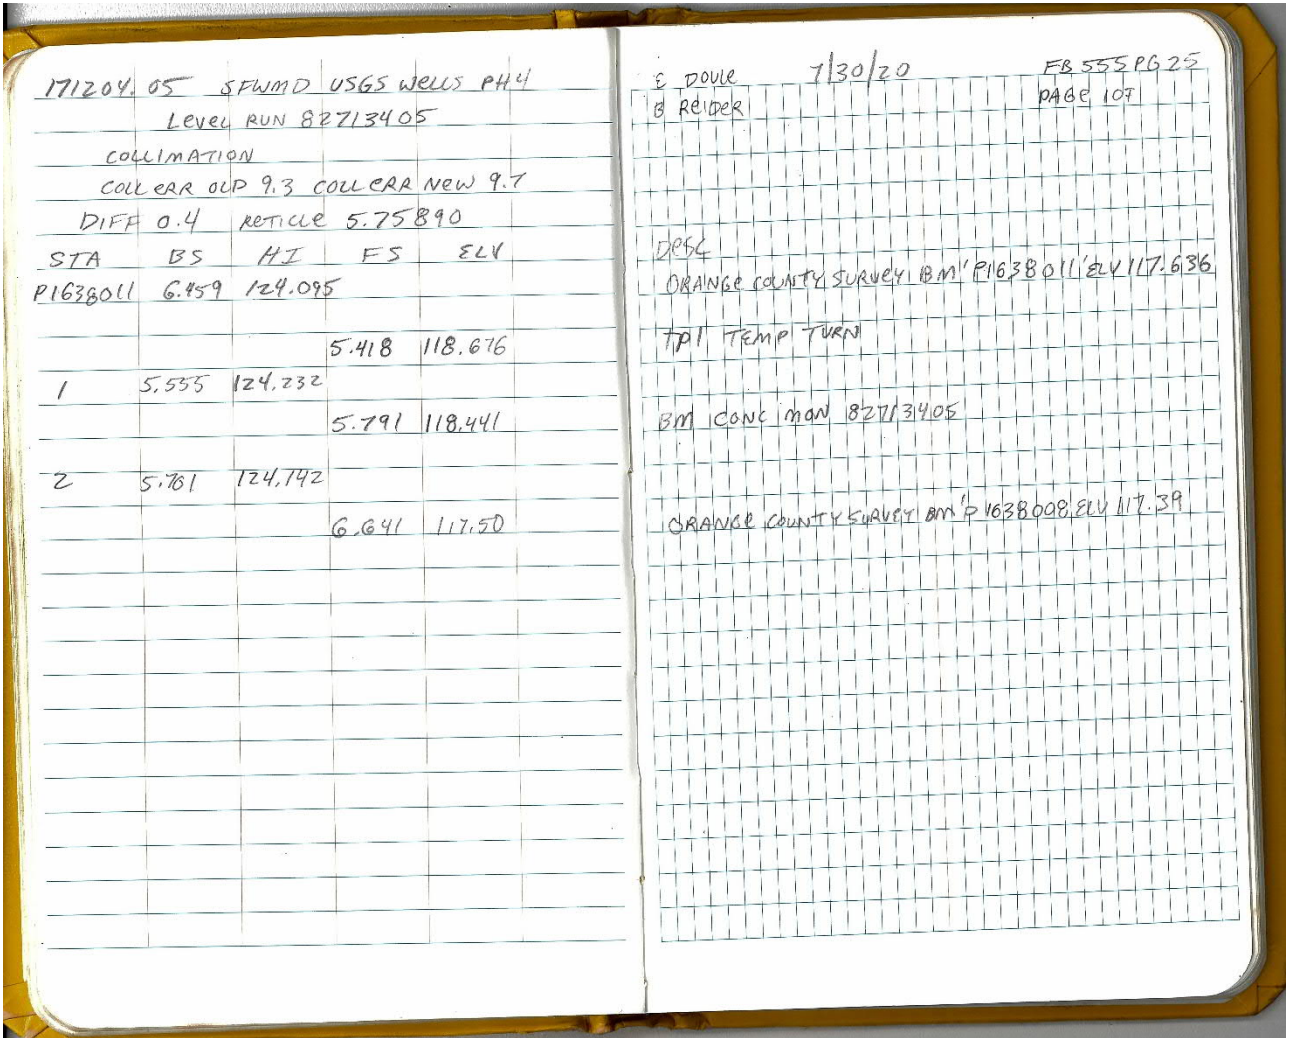 171204.05 SFWMD USGS WELLS PH4
LEVEL RUN 82713405
COLLIMATION
COLL ERR OLD 9.3 COLL ERR NEW 9.7
DIFF 0.4 RETICLE 5.75890
STA BS HI FS ELV
P1638011 6.459 124.095
5.418 118.676
1 5.555 124.232
5.791 118.441
2 5.701 124.142
6.641 117.50
E DOVLE 7/30/20 FB 555 PG 25
B REIDER PAGE 107
DESC
ORANGE COUNTY SURVEY BM 'P1638011' ELV 117.636
TP1 TEMP TURN
BM CONC MON 82713405
ORANGE COUNTY SURVEY BM 'P1638098 ELV 117.39